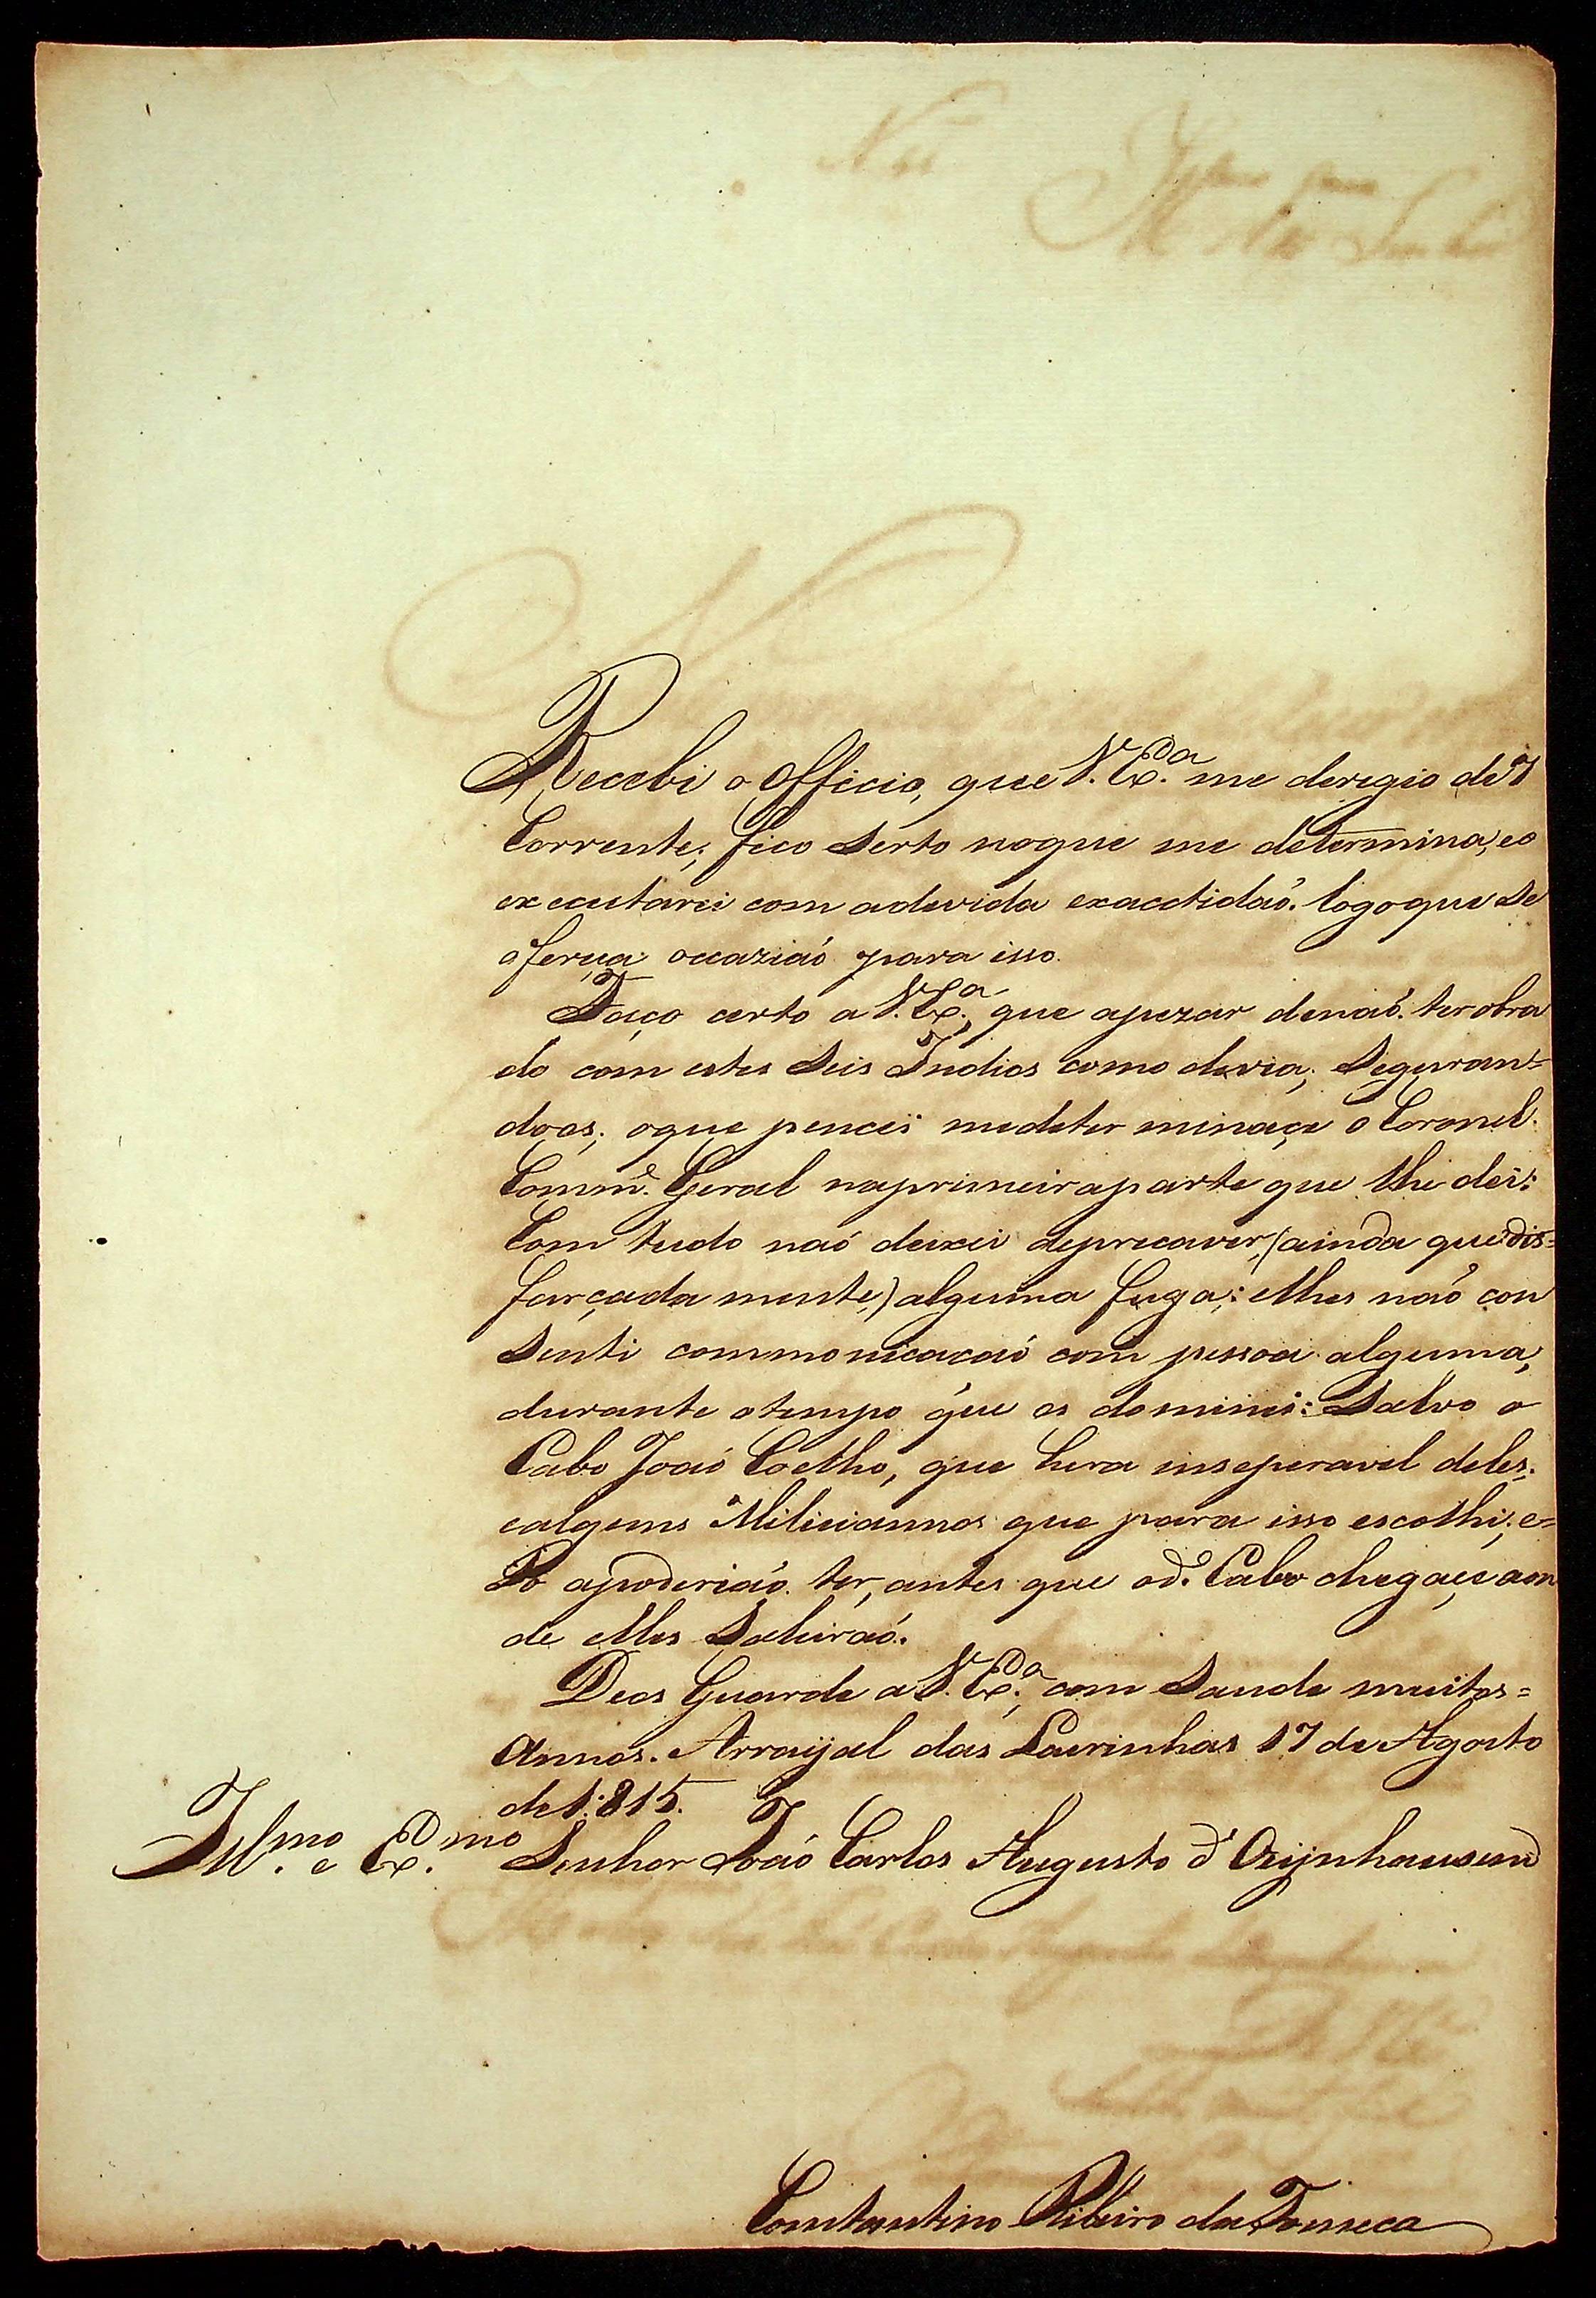 Recebi o Officio, que V. Ex.ª me deregio de 7
Corrente; fico Serto noque me determina, eo
executarei com adevida exacctidaõ. logoque Se
ofereça occaziaõ para isso.
Faço certo a V. Ex.ª, que apezar denaõ. ter obra
do com estes Seis Indios como devia; Seguran=
doos; oque pencei medeter minaçe o Coronel.
Comm.e Geral naprimeiraparte que lhe dei:
Com tudo naõ deixei deprecaver, (ainda quedis=
farçada mente,) alguma fuga; elhes naõ con
Senti communicacaõ com pessoa alguma,
durante otempo que os dominei: Salvo o
Cabo Joaõ Coelho, que hera inseperavel deles;
ealguns Miliciannos que para isso escolhi; e=
So apoderiaõ ter, antes que o d.o Cabo chegaçe aon
de elles Sahiraõ.
Deos Guarde a V. Ex.ª, com Saude muitos=
Annos. Arraijal das Lavrinhas 17 de Agosto
de 1:815.
Ill.mo e Ex.mo Senhor Joaõ Carlos Augusto d'Oeijnhausend
Constantino Ribeiro da Fonseca